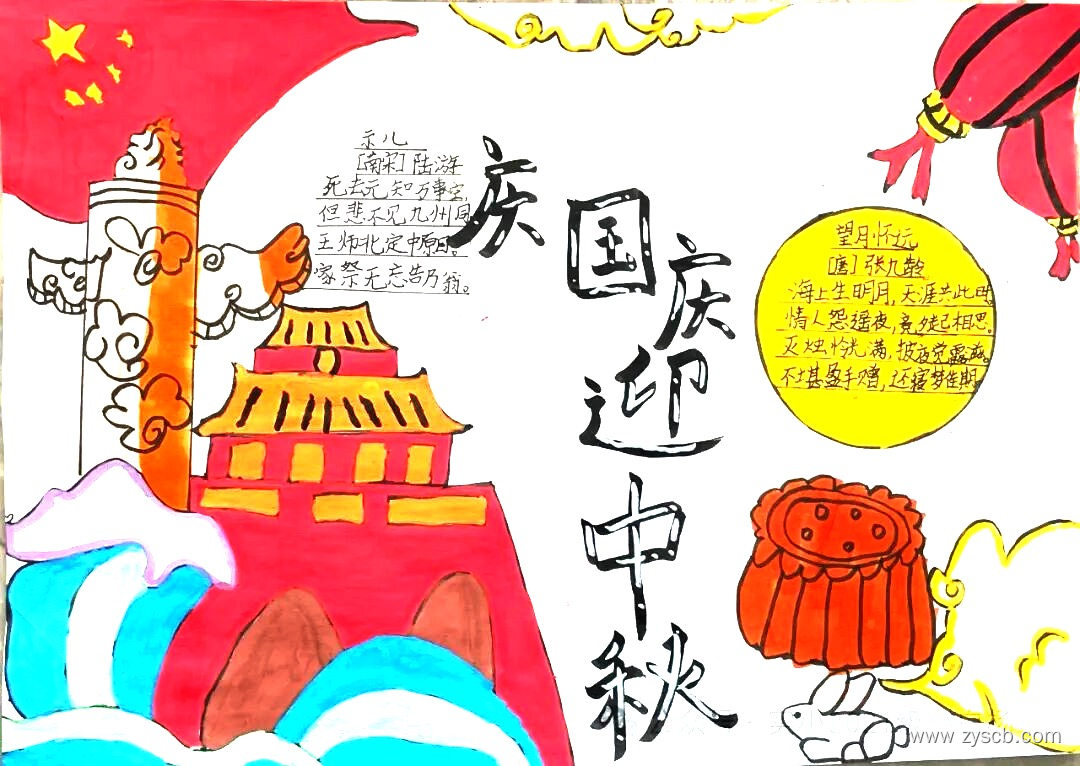 示儿
[南宋] 陆游
死去元知万事空,
但悲不见九州同
王师北定中原日。
家祭无忘告乃翁。
庆国庆迎中秋
望月怀远
[唐] 张九龄
海上生明月,天涯共此时
情人怨遥夜,竟夕起相思。
灭烛怜光满,披夜觉露滋。
不堪盈手赠,还寝梦佳期
www.zyscb.com